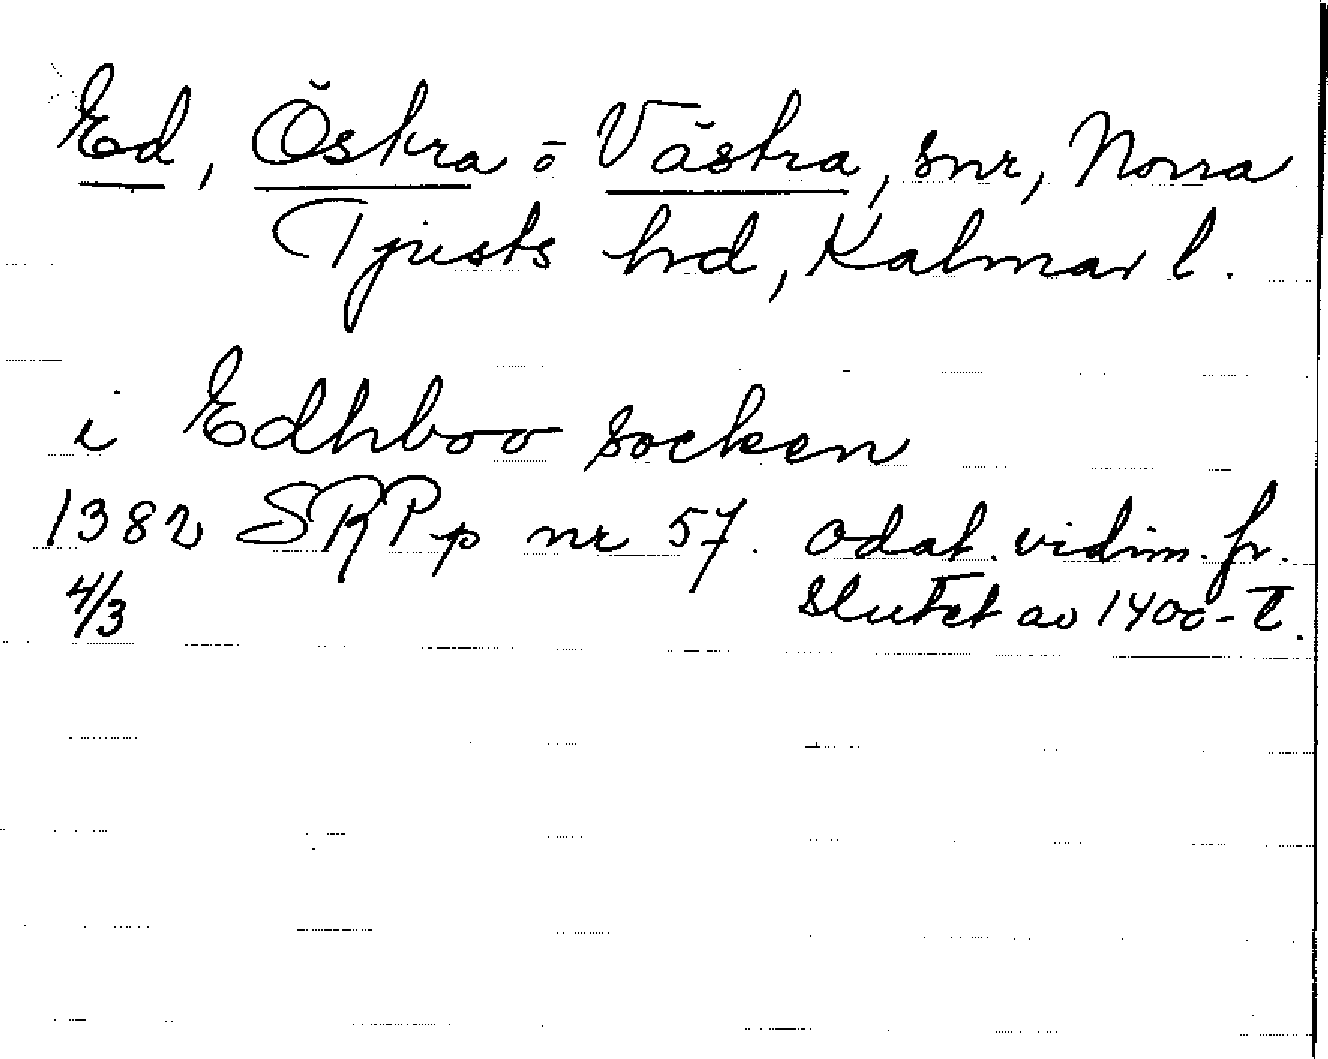 Ed, Östra o Västra, snr, Norra
Tjusts hrd, Kalmar l.
i Edhboo socken
1382 SRPp nr 57. odat. vidim. fr.
4/3 slutet av 1400-t.